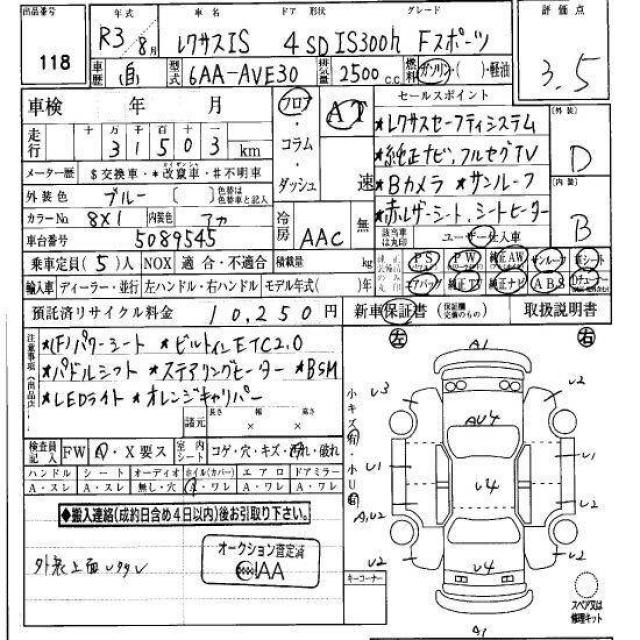 出品番号 年式 車名 ドア 形状 グレード 評価点
118 R3/8月 レクサスIS 4SD IS300h Fスポーツ 3.5
車歴 自 型式 6AA-AVE30 排気量 2500cc 燃料 ガソリン・( )・軽油
車検 年 月 フロア・コラム・ダッシュ AT 速 セールスポイント
走行 十 万 千 百 十 一 31503 km
*レクサスセーフティシステム 外装 D
*純正ナビ、フルセグTV
メーター歴 $交換車・*改竄車・#不明車
*Bカメラ *サンルーフ 内装 B
外装色 ブルー ( ) 色替は色替車名と記入
*赤レザーシート、シートヒーター
カラーNo. 8X1 内装色 アカ 冷房 AAC 無
該当車は丸印 ユーザー仕入車
車台番号 5089545
乗車定員(5)人 NOX 適合・不適合 積載量 kg
PS PW 純正AW サンルーフ 革シート
輸入車 ディーラー・並行 左ハンドル・右ハンドル モデル年式( )年
エアバッグ 純正TV 純正ナビ ABS
預託済リサイクル料金 10,250円 新車保証書 (保証欄交換のもの) 取扱説明書
注意事項
*(F)パワーシート *ビルトインETC2.0
*パドルシフト *ステアリングヒーター *BSM
*LEDライト *オレンジキャリパー
諸元 長さ 幅 高さ × ×
検査員記入 FW A・X要ス 室内シート コゲ・穴・キズ・汚れ・破れ
ハンドル シート オーディオ ホイル(カバー) エアロ ドアミラー
A・スレ A・スレ 無し・穴 A・ワレ A・ワレ A・ワレ
◆搬入連絡(成約日含め4日以内)後お引取り下さい。
オークション査定済
IAA
小キズ有・小U有
左 右
A1
U3 U2
AU4
U1 U1
U4
A,U2 U2
U2 U4 U2
A1
キーコーナー
スペア又は
修理キット